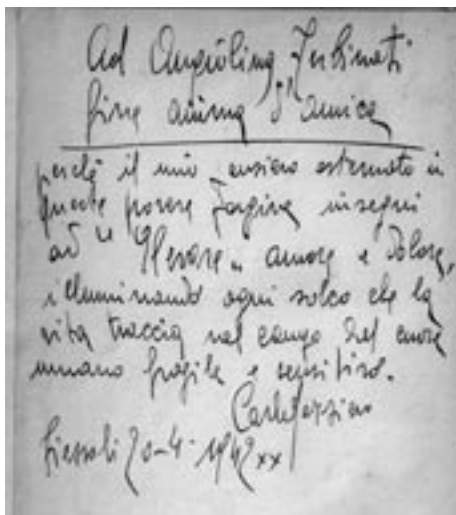 Ad Angiolina
fine anima d'amica
perchè il mio pensiero esternato in
queste povere pagine insegni
ad "Elevare" amore e dolore,
illuminando ogni solco che la
vita traccia nel campo del cuore
umano fragile e sensitivo.
20-4-1942 xx